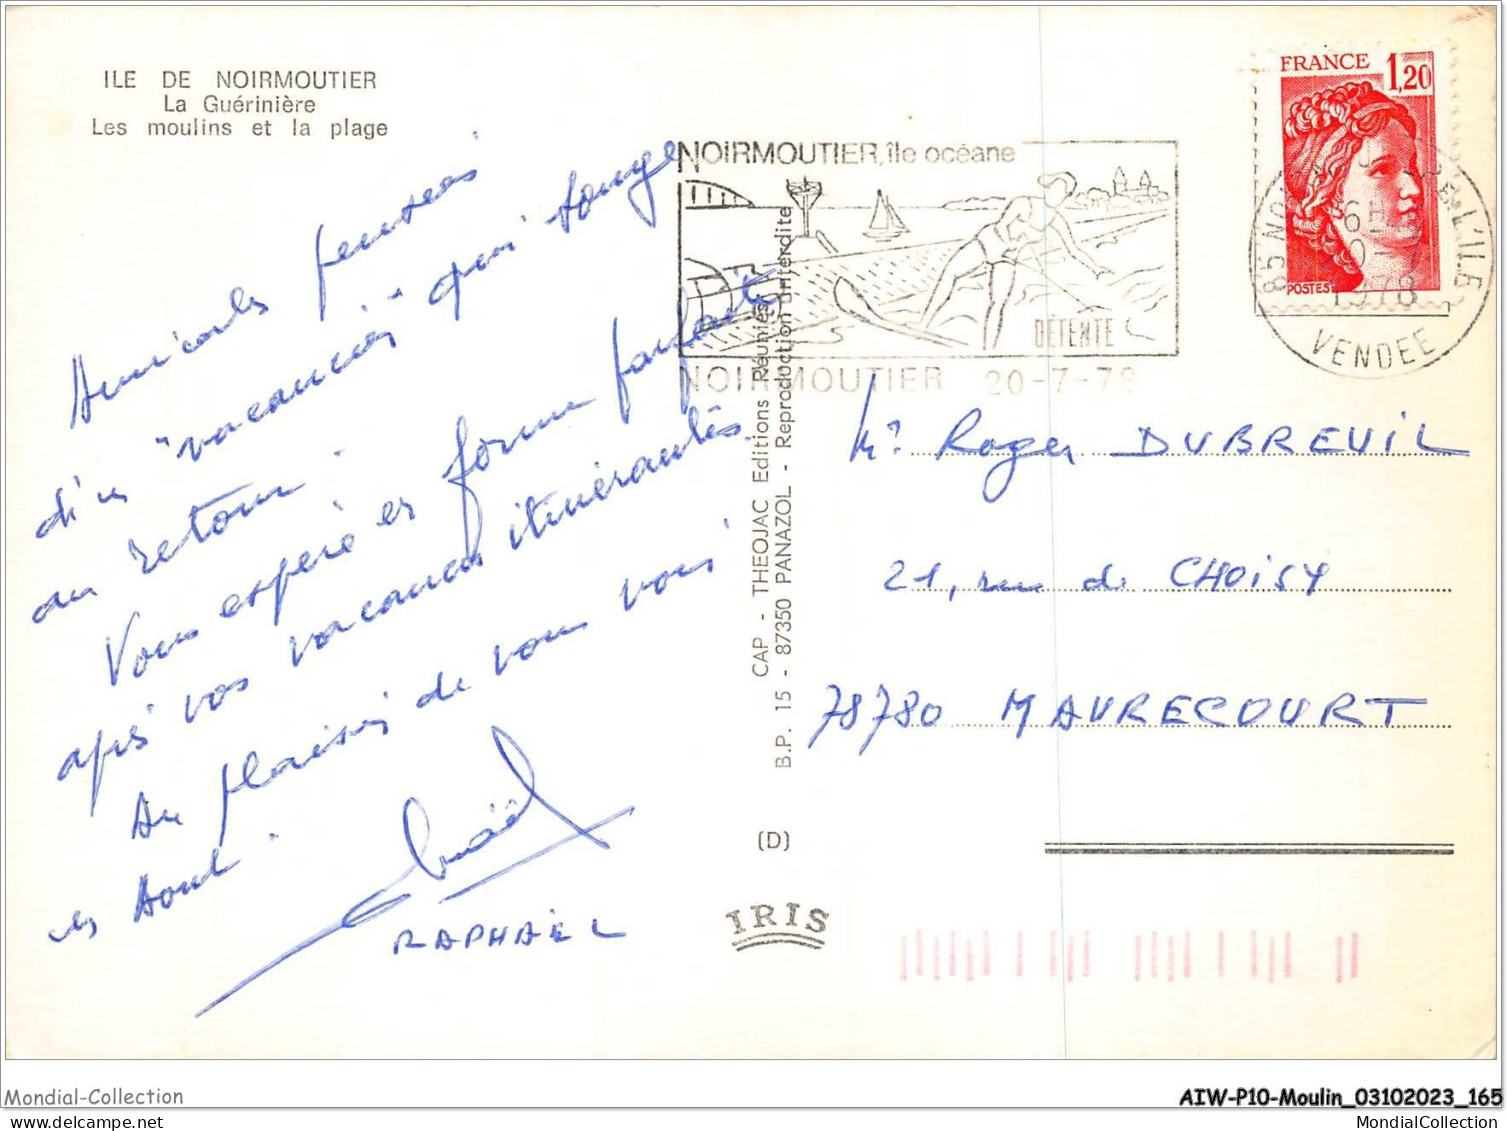 ILE DE NOIRMOUTIER
La Guérinière
Les moulins et la plage
Amicales pensées
d'un "vacancier" qui songe
au retour.
Vous espère en forme parfait
après vos vacances itinérantes.
Au plaisir de vous voir
en Aout.
Raphaël
RAPHAËL
CAP - THEOJAC Editions Réunies
B.P. 15 - 87350 PANAZOL - Reproduction interdite
(D)
IRIS
NOIRMOUTIER, île océane
DÉTENTE
NOIRMOUTIER 20-7-78
FRANCE 1,20
POSTES
85 NOIRMOUTIER EN L'ILE
1978
VENDEE
Mr Roger DUBREUIL
21, rue de CHOISY
78780 MAURECOURT
Mondial-Collection
AIW-P10-Moulin_03102023_165
MondialCollection